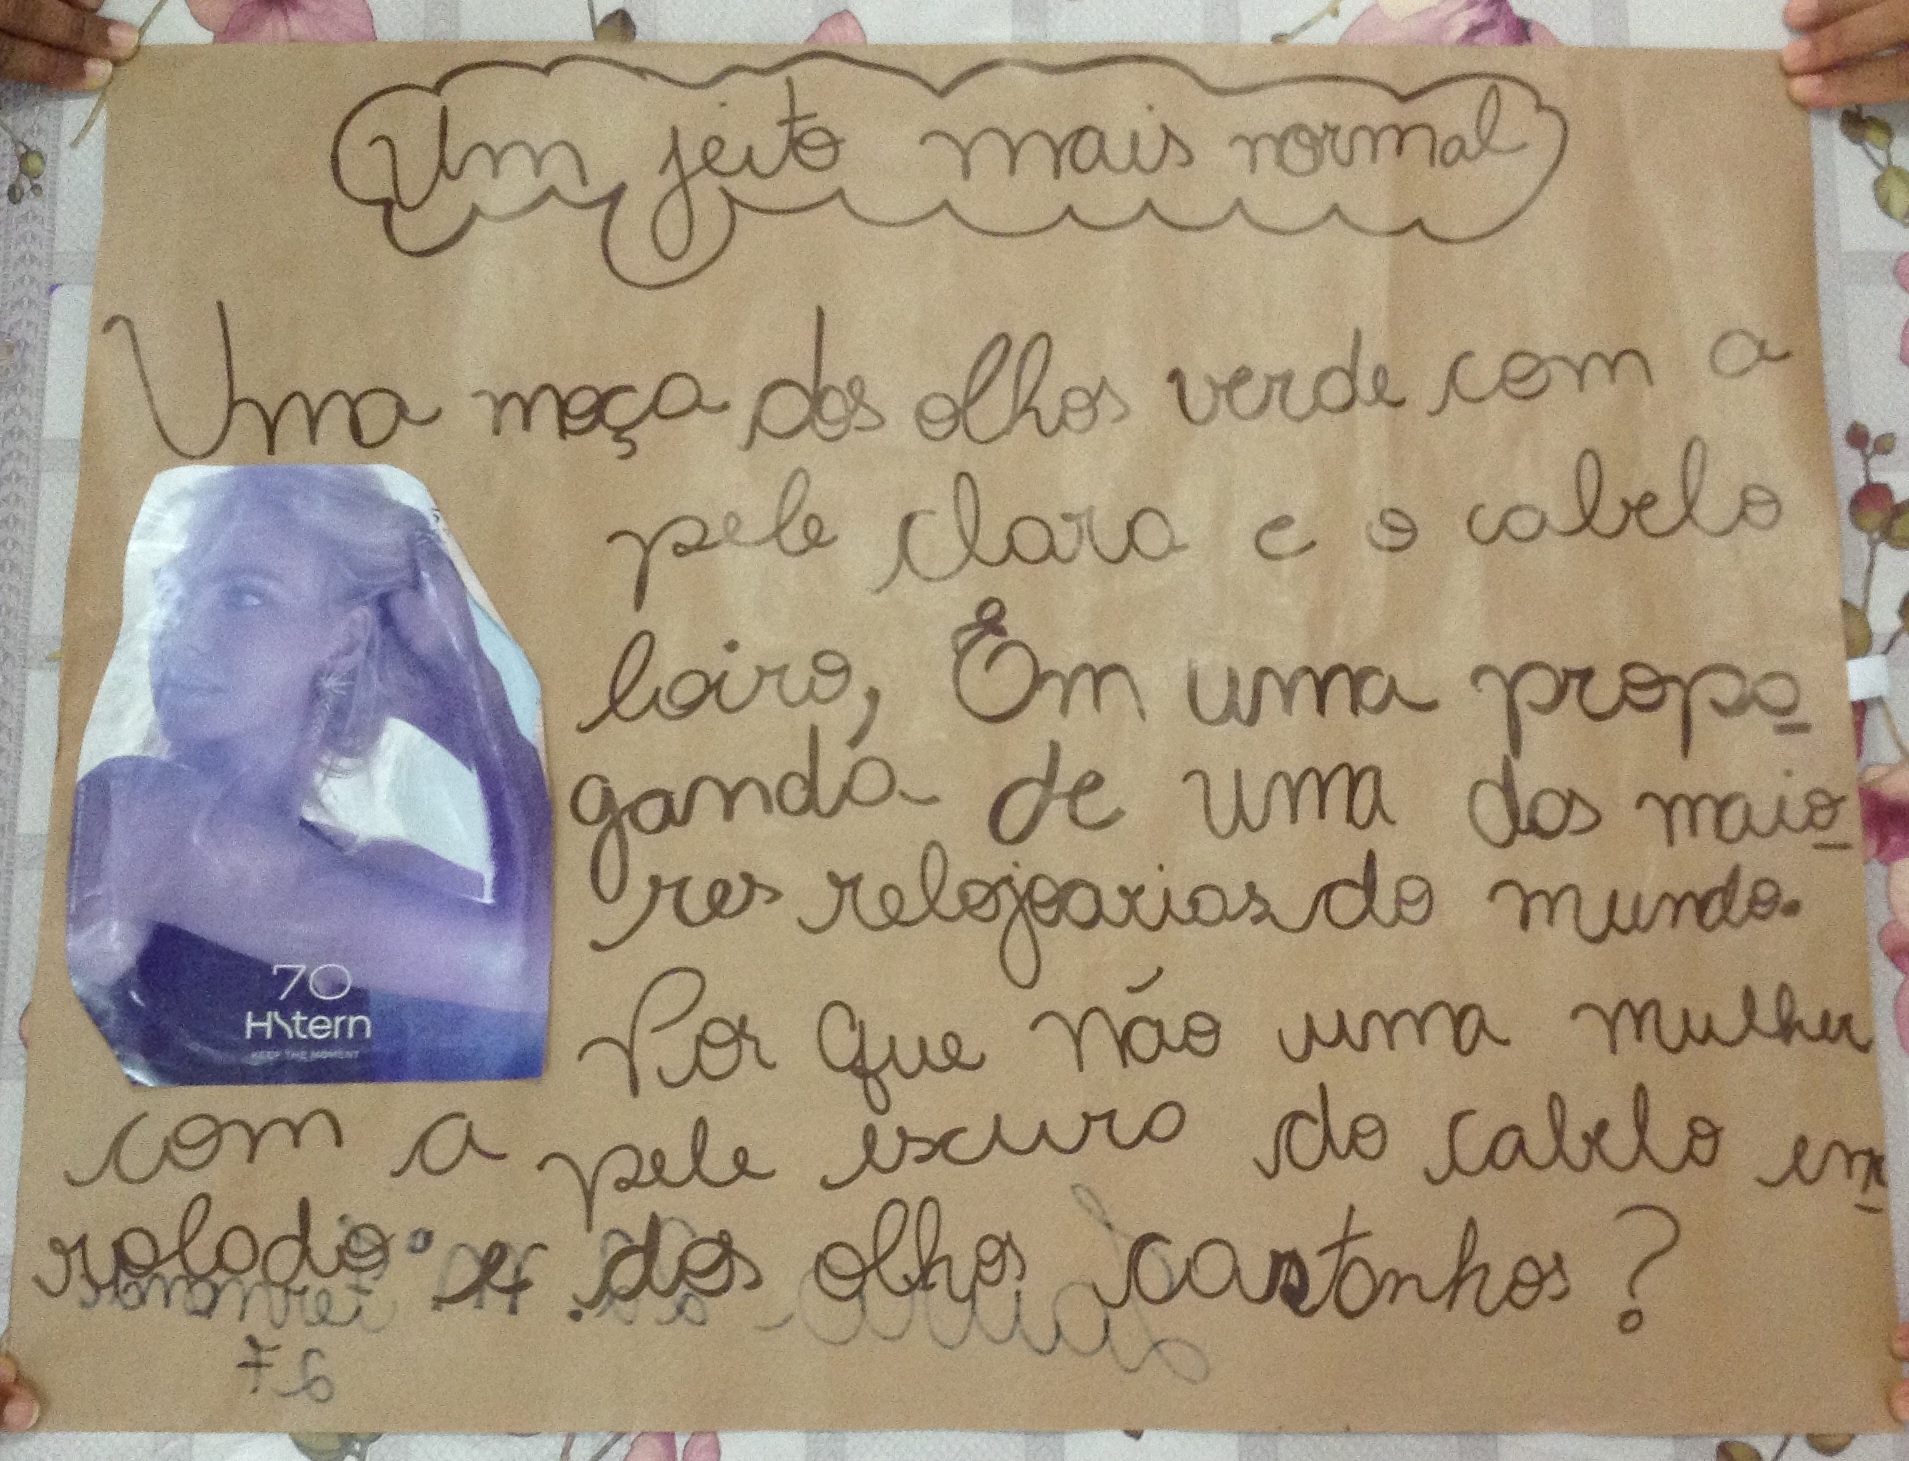 Um jeito mais normal
Uma moça dos olhos verde com a
pele clara e o cabelo
loiro, Em uma propa
ganda de uma das maio
res relojoarias do mundo.
Por que não uma mulher
com a pele escura do cabelo en
rolado e dos olhos castanhos?
70
HStern
KEEP THE MOMENT